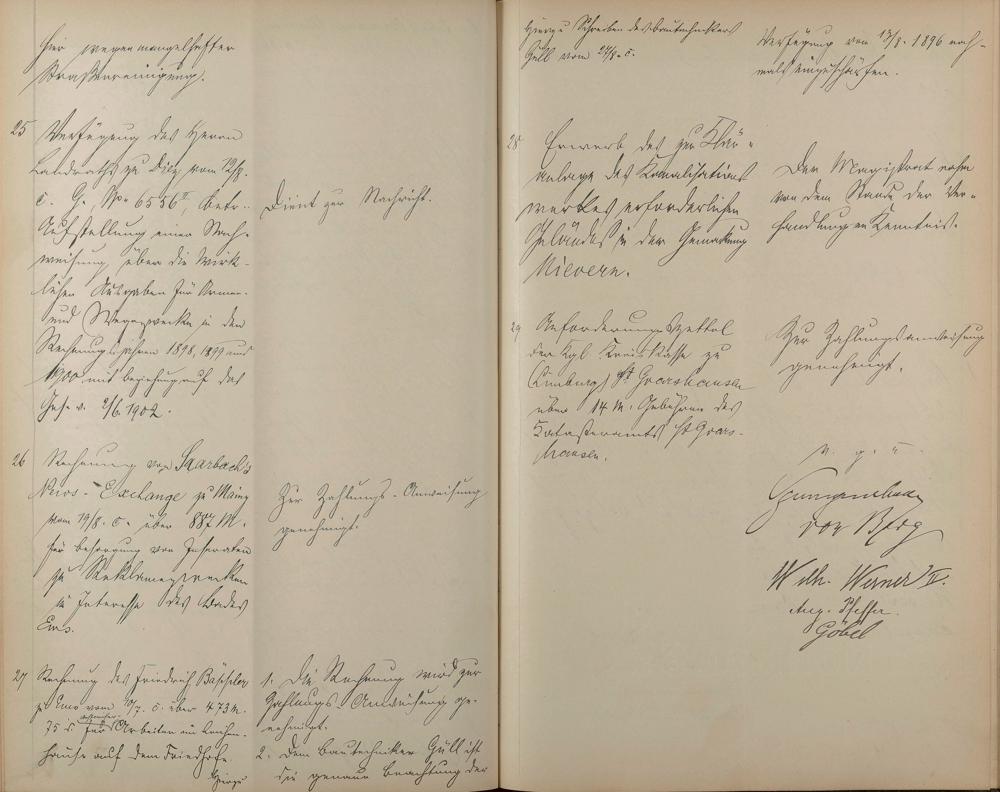 hier wegen mangelhafter
Straßenreinigung.
25 Verfügung des Herrn
Landraths zu Diez vom 12/8.
c. G. No 6556 II, betr.
Aufstellung einer Nach-
weisung, über die wirk-
lichen Ausgaben für Armen-
und Wegezwecke in den
Rechnungsjahren 1898, 1899 und
1900 mit beziehung auf das
Ges. v. 2/6. 1902.
Dient zur Nachricht.
26 Rechnung von Saarbach's
News-Exchange zu Mainz
vom 19/8. c. über 887 M.
für besorgung von Inseraten
zu Reklamezwecken
im Interesse des Bades
Ems.
Zur Zahlungs-Anweisung
genehmigt.
27 Rechnung des Friedrich
zu Ems vom c. über 473 M.
75 für Arbeiten im Leichen-
hause auf dem Friedhofe
Hierzu
1. Die Rechnung wird zur
Zahlungs-Anweisung ge-
nehmigt.
2. Dem Bautechniker Güll ist
die genaue Beachtung der
Hierzu Schreiben des Bautechnikers
Güll vom 27/8. c.
Verfügung vom 13/8. 1896 noch-
mals einzuschärfen.
28 Erwerb des zur Klär-
anlage des Kanalisations
werkes erforderlichen
Geländes in der Gemarkung
Nievern.
Der Magistrat nahm
von dem Stande der Ver-
handlungen Kenntnis.
29 Anforderungszettel
der Kgl. Kreiskasse zu
Limburg, St Goarshausen
über 14 M. Gebühren des
Katasteramts St Goars-
hausen.
Zur Zahlungsanweisung
genehmigt.
v. g. u.
von Berg
Wilh. Werner IV.
Aug. Pfeffer
Göbel